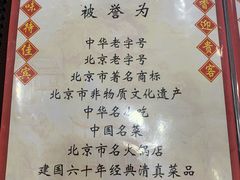 被誉为
中华老字号
北京老字号
北京市著名商标
北京市非物质文化遗产
中华名小吃
中国名菜
北京市名火锅店
建国六十年经典清真菜品
味待佳宾
香迎贵客